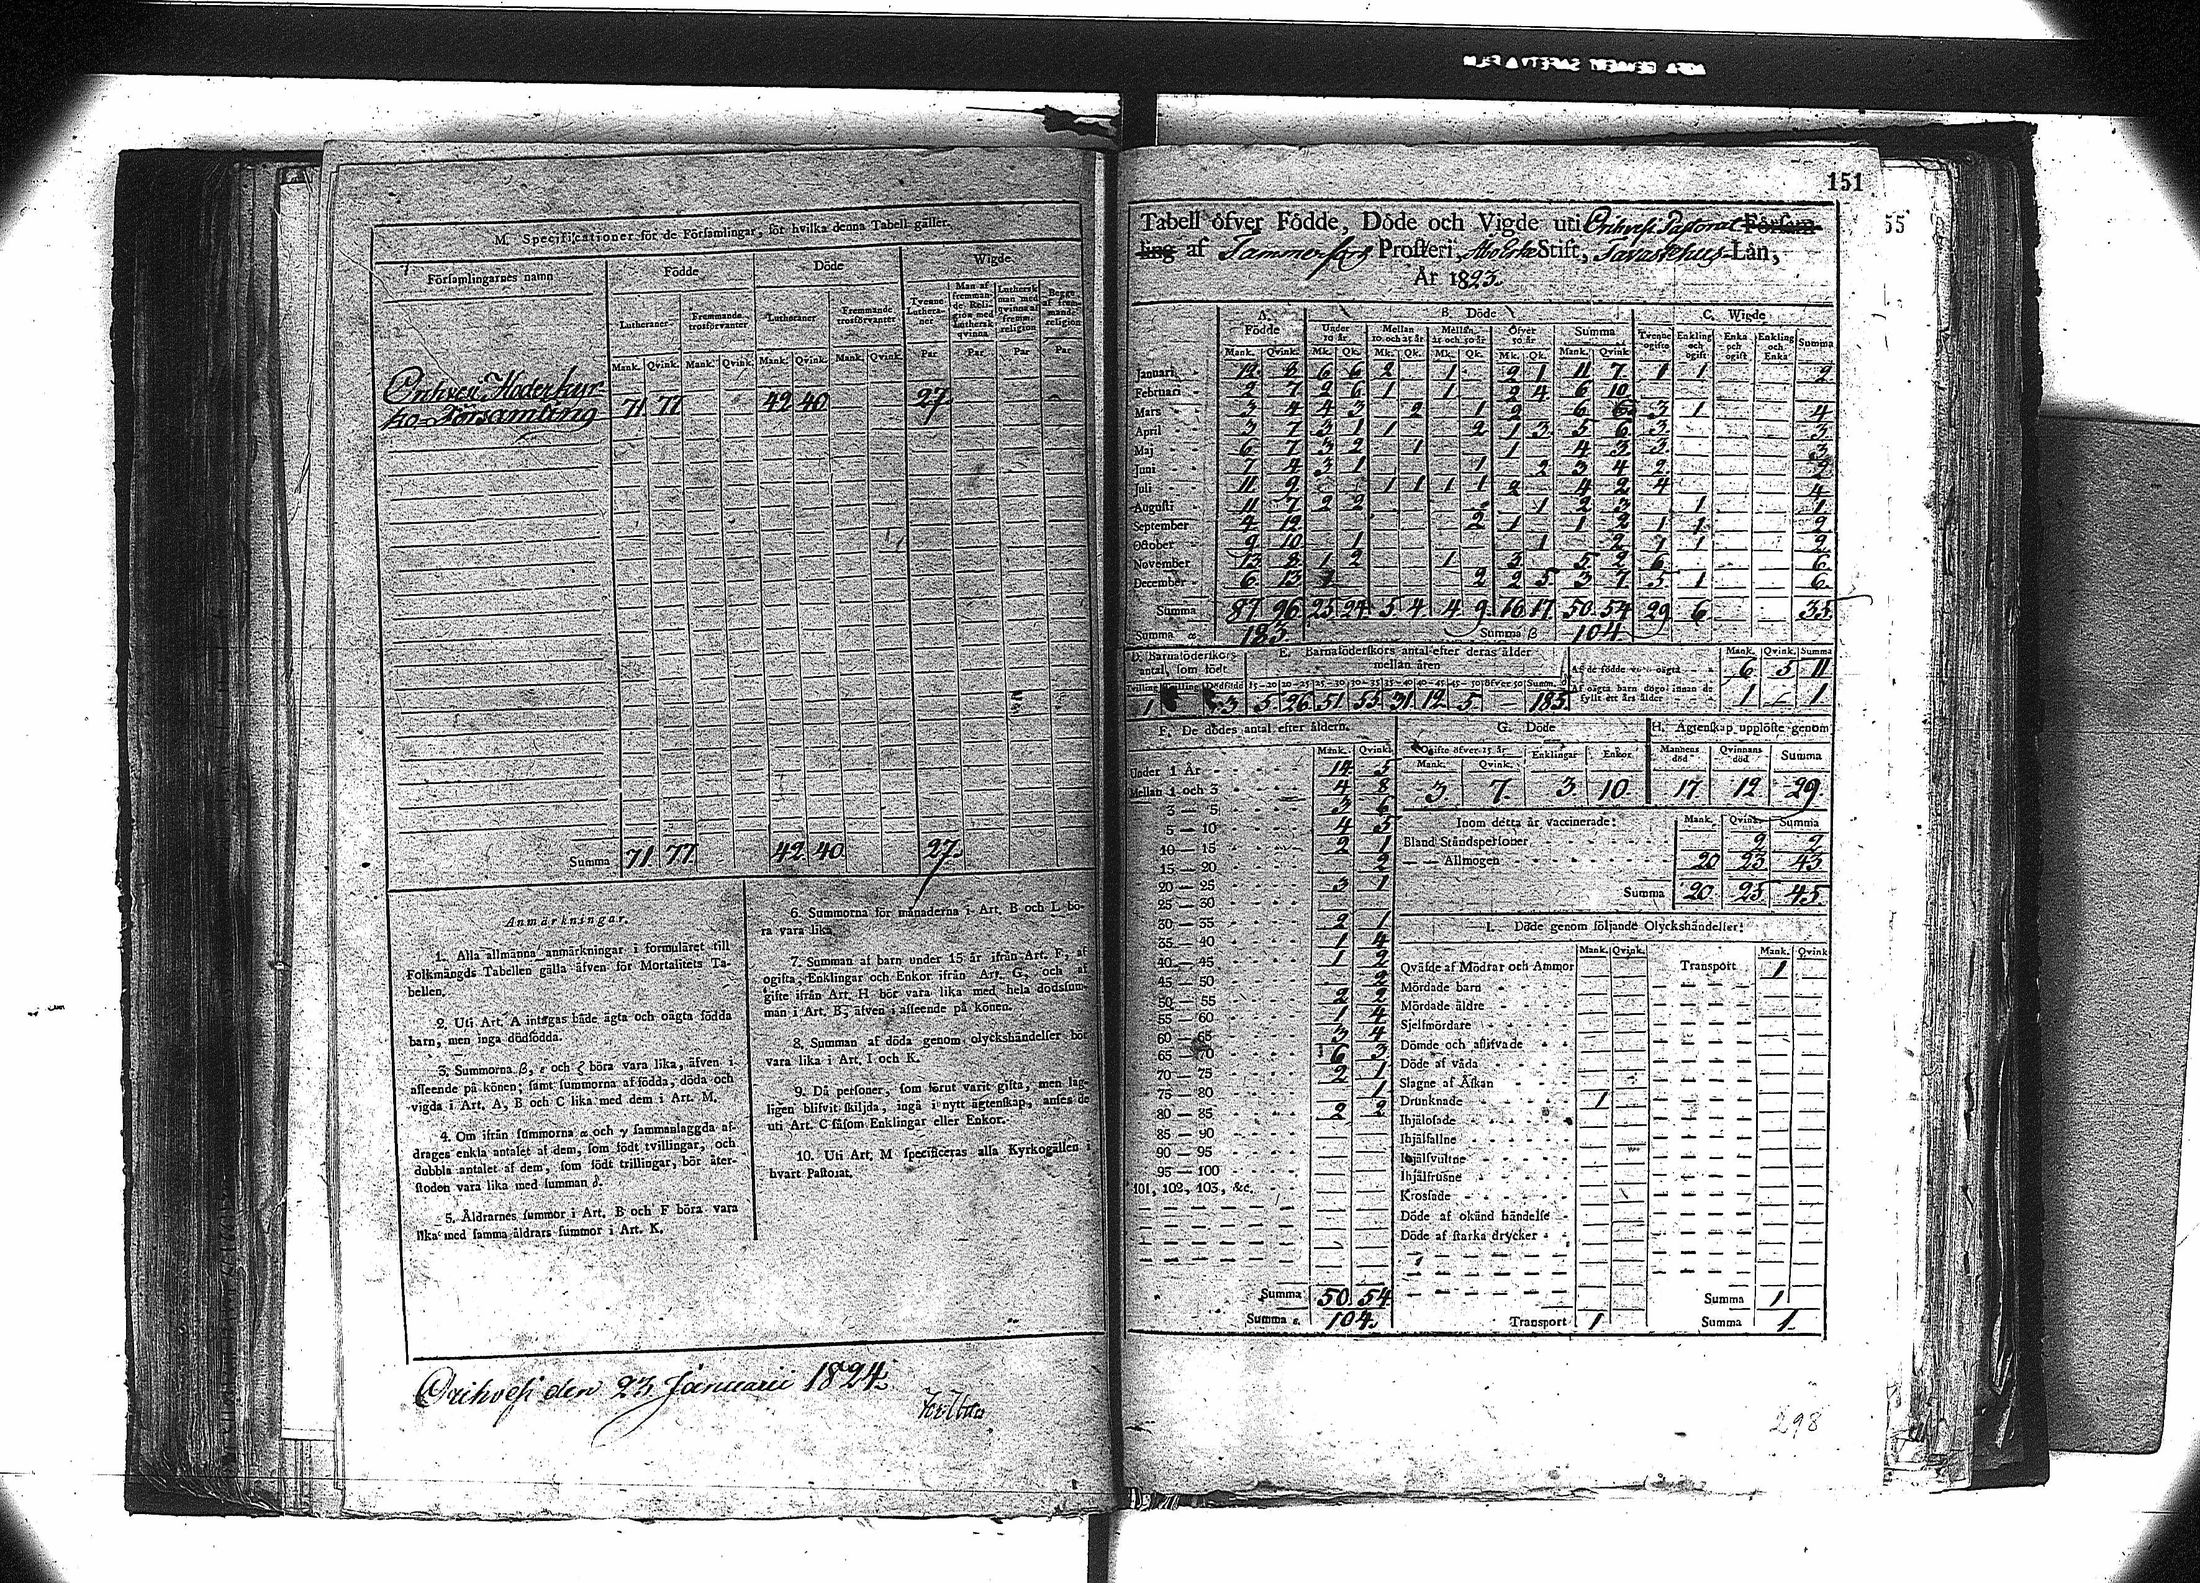 151
55
M. Specificationer för de Församlingar, för hvilka denna Tabell gäller.
Församlingarnes namn
Födde
Döde
Wigde
Lutheraner
Fremmande trosförvanter
Lutheraner
Fremmande trosförvanter
Tvenne Lutheraner
Man af fremmande Religion med Luthersk qvinna
Luthersk man med qvinna af fremm. religion
Begge af fremmande religion
Mank. Qvink. Mank. Qvink. Mank. Qvink. Mank. Qvink. Par Par Par Par
Orihvesi Moderkyr
ko-Församling 71 77 42 40 27
Summa 71 77 42 40 27
Anmärkningar.
1. Alla allmänna anmärkningar i formuläret till
Folkmängds Tabellen gälla äfven för Mortalitets Ta-
bellen.
2. Uti Art. A intagas både ägta och oägta födda
barn, men inga dödfödda.
3. Summorna β, ε och ζ böra vara lika, äfven i
afseende på könen; samt summorna af födda, döda och
vigda i Art. A, B och C lika med dem i Art. M.
4. Om ifrån summorna α och γ sammanlaggda af-
drages enkla antalet af dem, som födt tvillingar, och
dubbla antalet af dem, som födt trillingar, bör åter-
stoden vara lika med summan δ.
5. Åldrarnes summor i Art. B och F böra vara
lika med samma åldrars summor i Art. K.
6. Summorna för månaderna i Art. B och L bö-
ra vara lika
7. Summan af barn under 15 år ifrån Art. F, af
ogifta, Enklingar och Enkor ifrån Art. G, och af
gifte ifrån Art. H bör vara lika med hela dödssum-
man i Art. B, äfven i afseende på könen.
8. Summan af döda genom olyckshändelser bör
vara lika i Art. I och K.
9. Då personer, som förut varit gifta, men lag-
ligen blifvit skiljda, ingå i nytt ägtenskap, anses de
uti Art. C såsom Enklingar eller Enkor.
10. Uti Art. M specificeras alla Kyrkogällen i
hvart Pastorat.
Orihvesi den 23 Januarii 1824.
Tabell öfver Födde, Döde och Vigde uti Orihvesi Pastorat Försam-
ling af Tammerfors Prosteri, Åbo Erke Stift, Tavastehus Län,
År 1823.
A. Födde
B. Döde
C. Wigde
Under 10 år
Mellan 10 och 25 år
Mellan 25 och 50 år
Öfver 50 år
Summa
Tvenne ogifte
Enkling och ogift
Enka och ogift
Enkling och Enka
Summa
Mank. Qvink. Mk. Qk. Mk. Qk. Mk. Qk. Mk. Qk. Mank. Qvink.
Januari 12 8 6 6 2 1 2 1 11 7 1 1 2
Februari 2 7 2 6 1 1 2 4 6 10
Mars 3 4 4 3 2 1 2 6 6 3 1 4
April 3 7 3 1 1 2 1 3 5 6 3 3
Maj 6 7 3 2 1 1 4 3 3 3
Juni 7 4 3 1 1 2 3 4 2 2
Juli 11 9 1 1 1 1 2 4 2 4 4
Augusti 11 7 2 2 1 2 3 1 1
September 4 12 2 1 1 2 1 1 2
October 9 10 1 1 2 1 1 2
November 13 8 1 2 1 3 5 2 6 6
December 6 13 1 2 2 5 3 7 5 1 6
Summa 87 96 25 24 5 4 4 9 16 17 50 54 29 6 35
Summa α 183 Summa β 104
D. Barnaföderskors antal, som födt
E. Barnaföderskors antal efter deras ålder
mellan åren
Mank. Qvink. Summa
Af de födde voro oägta 6 5 11
Af oägta barn dogo innan de
fyllt ett års ålder 1 1
Dödföde 15—20 20—25 25—30 30—35 35—40 40—45 45—50 öfver 50 Summ. δ
1 3 5 26 51 55 31 12 5 185
F. De dödes antal efter åldern.
Mank. Qvink.
Under 1 År 14 5
Mellan 1 och 3 4 8
3 — 5 3 6
5 — 10 4 5
10 — 15 2 1
15 — 20 2
20 — 25 3 1
25 — 30
30 — 35 2 1
35 — 40 1 4
40 — 45 1 2
45 — 50 2
50 — 55 2 2
55 — 60 1 4
60 — 65 3 4
65 — 70 6 3
70 — 75 2 1
75 — 80 1
80 — 85 2 2
85 — 90
90 — 95
95 — 100
101, 102, 103, &c.
Summa 50 54
Summa ε. 104.
G. Döde
Ogifte öfver 15 år
Mank. Qvink. Enklingar Enkor
3 7 3 10
H. Ägtenskap upplöste genom
Mannens död Qvinnans död Summa
17 12 29
Inom detta år vaccinerade: Mank. Qvink. Summa
Bland Ståndspersoner 2 2
— — Allmogen 20 23 43
Summa 20 25 45
I. Döde genom följande Olyckshändelser:
Mank. Qvink. Mank. Qvink
Qväfde af Mödrar och Ammor Transport 1
Mördade barn
Mördade äldre
Sjelfmördare
Dömde och aflifvade
Döde af våda
Slagne af Åskan
Drunknade 1
Ihjälosade
Ihjälfallne
Ihjälsvultne
Ihjälfrusne
Krossade
Döde af okänd händelse
Döde af starka drycker
Summa 1
Transport 1 Summa 1
298